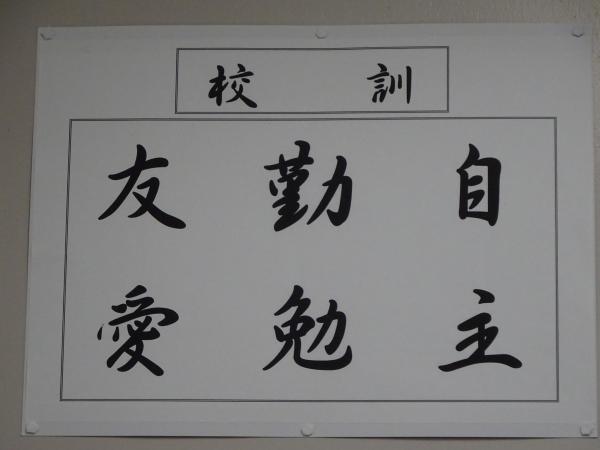 校訓
自主
勤勉
友愛